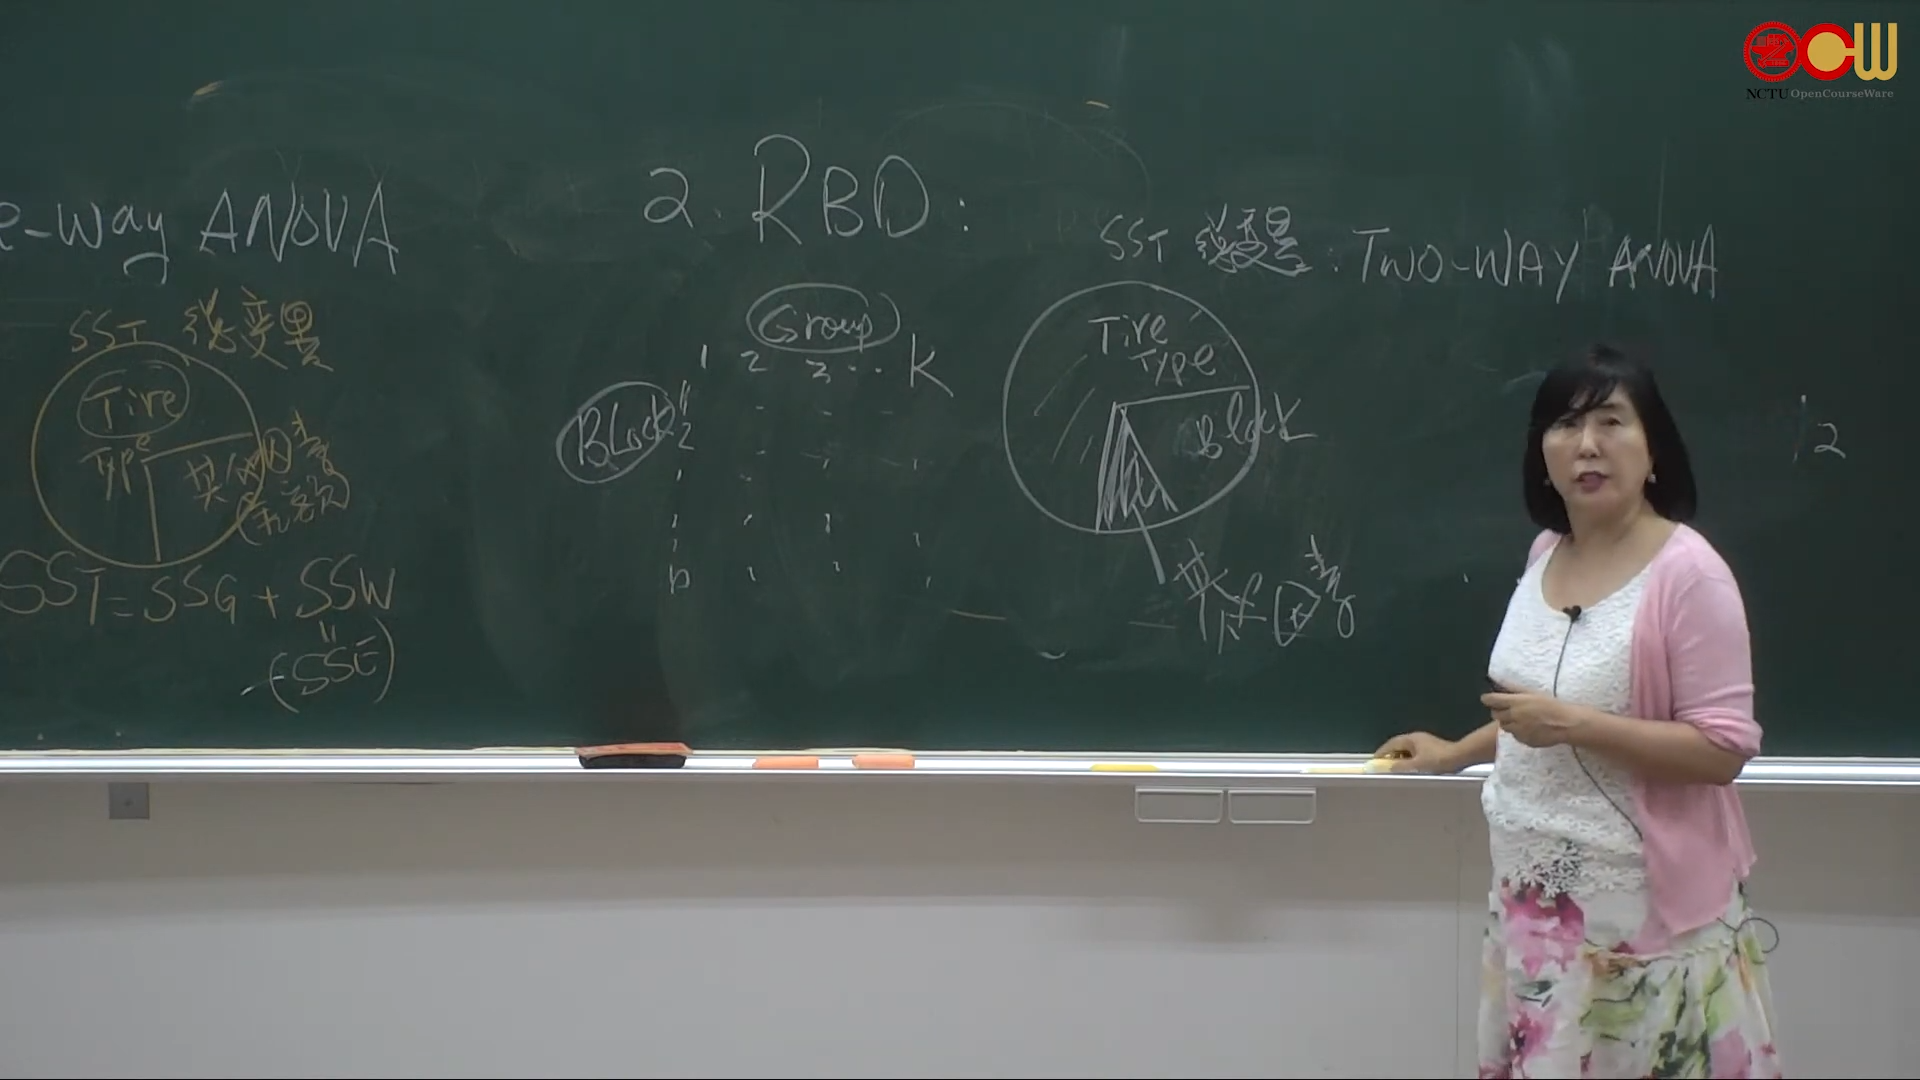 NCTU OpenCourseWare
e-way ANOVA
SST 總變異
Tire
Type
其他因素
SST = SSG + SSW
"
(SSE)
2. RBD:
Group
1 2 3 .. K
Block
1
2
b
SST 總變異. TWO-WAY ANOVA
Tire
Type
Block
其他因素
12